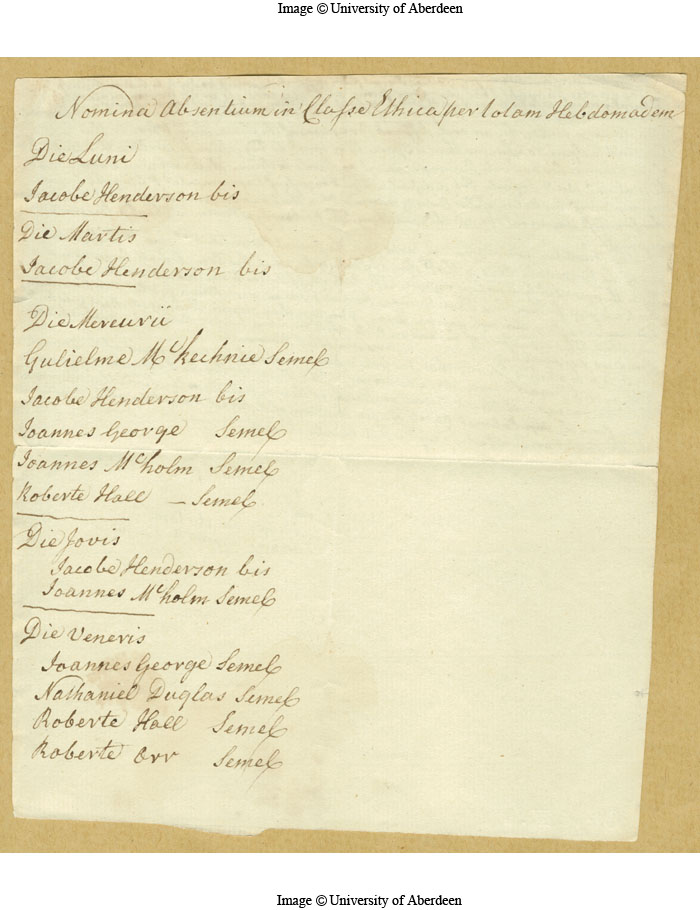 Image © University of Aberdeen
Nomina Absentium in Classe Ethica per totam Hebdomadem
Die Luni
Jacobe Henderson bis
Die Martis
Jacobe Henderson bis
Die Mercurii
Gulielme Mc Kechnie Semel
Jacobe Henderson bis
Joannes George Semel
Joannes Mcholm Semel
Roberte Hall — Semel
Die Jovis
Jacobe Henderson bis
Joannes Mcholm Semel
Die Veneris
Joannes George Semel
Nathaniel Duglas Semel
Roberte Hall Semel
Roberte Orr Semel
Image © University of Aberdeen